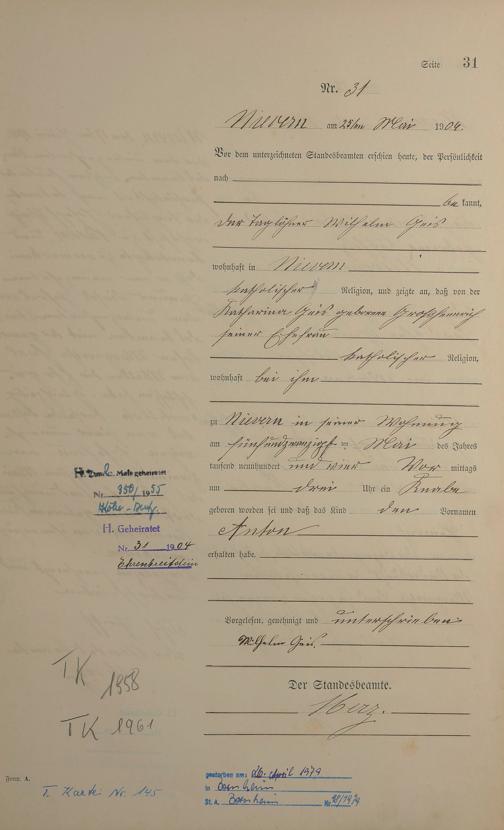 Seite 31
Nr. 31
Nievern am 25ten Mai 1904.
Vor dem unterzeichneten Standesbeamten erschien heute, der Persönlichkeit
nach
bekannt,
der Taglöhner Wilhelm Geis
wohnhaft in Nievern
katholischer Religion, und zeigte an, daß von der
Katharina Geis geborene
seiner Ehefrau
katholischer Religion,
wohnhaft bei ihm
zu Nievern in seiner Wohnung
am fünfundzwanzigsten Mai des Jahres
tausend neunhundert und vier Vor mittags
um drei Uhr ein Knabe
geboren worden sei und daß das Kind den Vornamen
Anton
erhalten habe.
Vorgelesen, genehmigt und unterschrieben
Wilhelm Geis.
Der Standesbeamte.
Herz.
Zum 2. Male geheiratet
Nr. 350/1955
H. Geheiratet
Nr. 31 1904
Ehrenbreitstein
TK 1958
TK 1961
Form. A.
T. Karte Nr. 145
gestorben am: 26. April 1979
in Bornheim
St. A. Bornheim Nr.